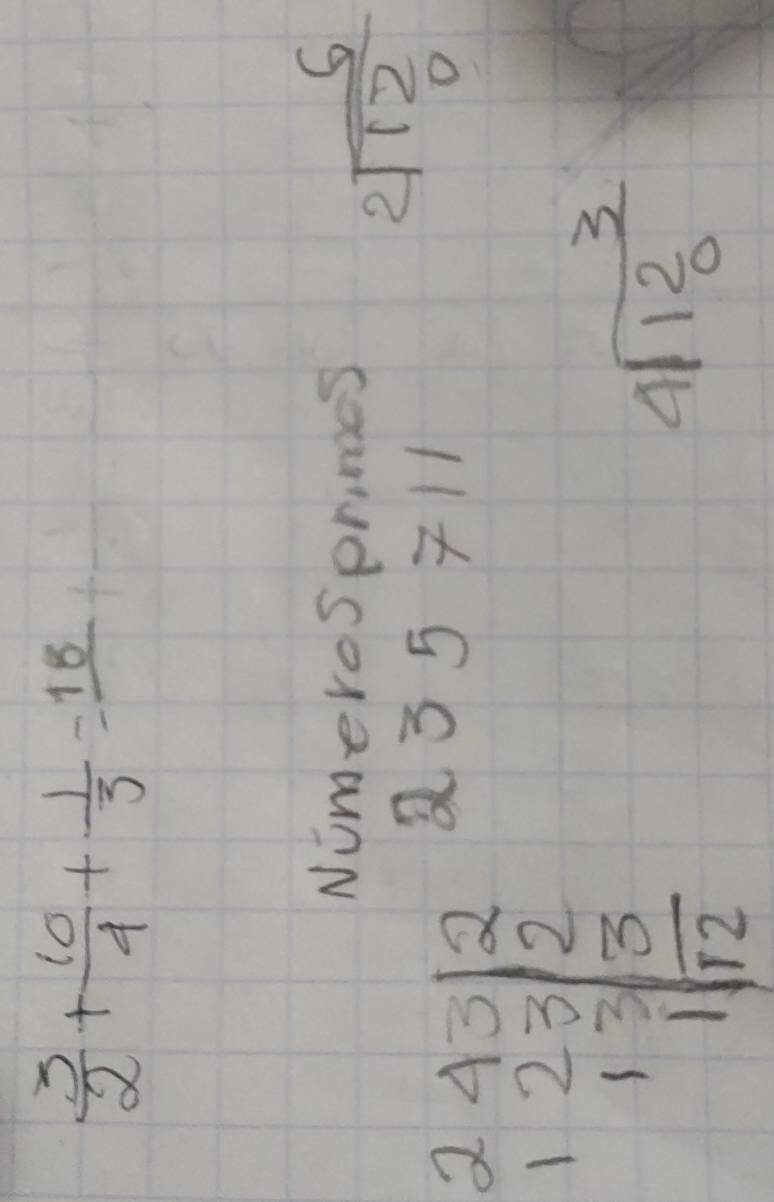 3/2 + 10/4 + 1/3 = 18/
Números primos
2 3 5 7 11
2 4 3 | 2
1 2 3 | 2
1 3 | 3
1 | 12
6
2 | 12
0
3
4 | 12
0